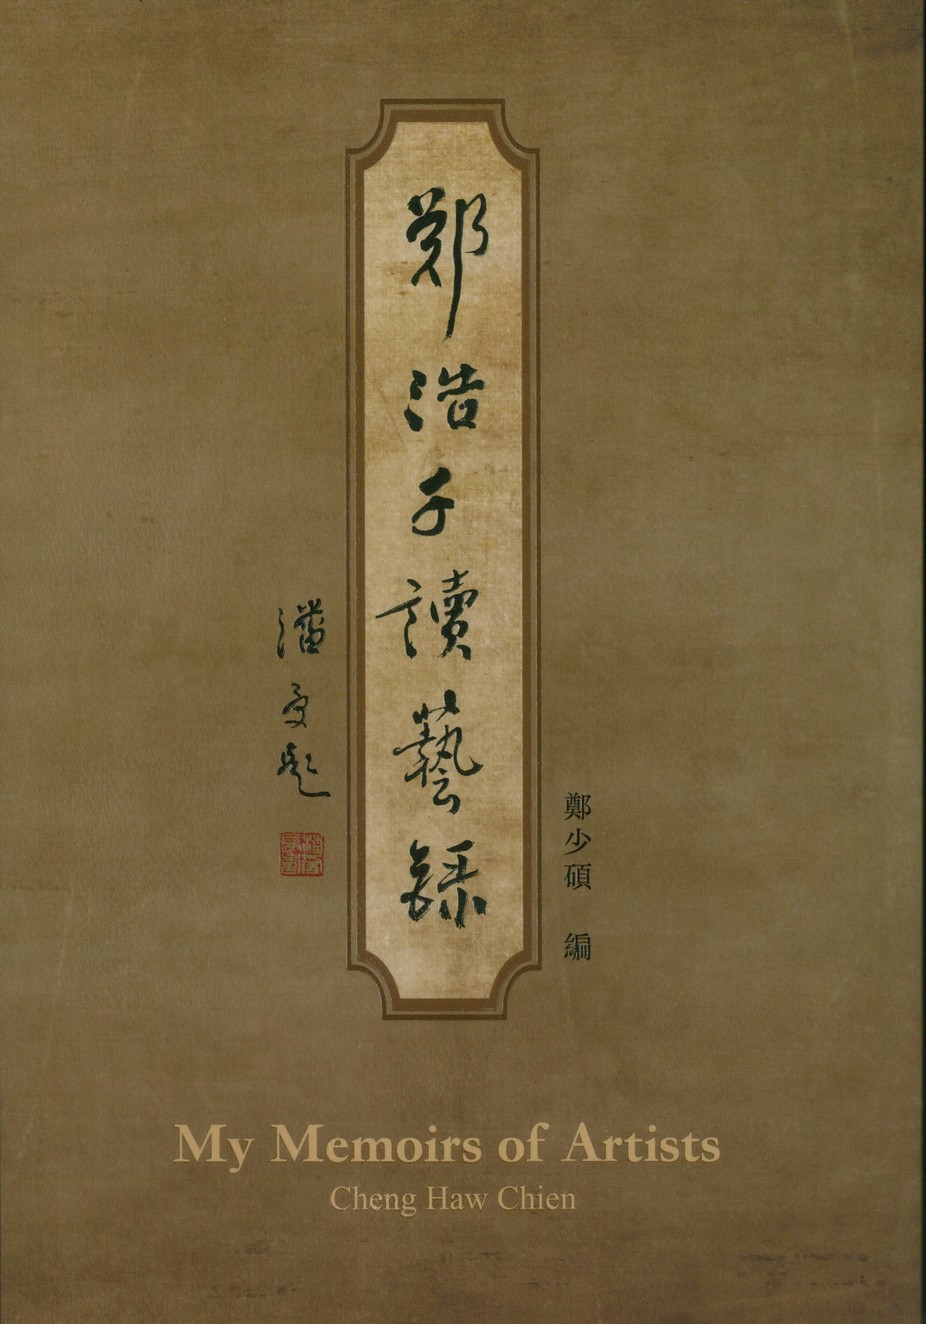 鄭浩千讀藝録
潘受題
鄭少碩 編
My Memoirs of Artists
Cheng Haw Chien